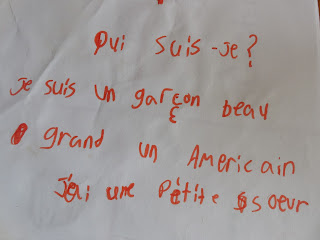 Qui suis-je?
je suis un garçon beau
grand un Americain
J'ai une Petite soeur